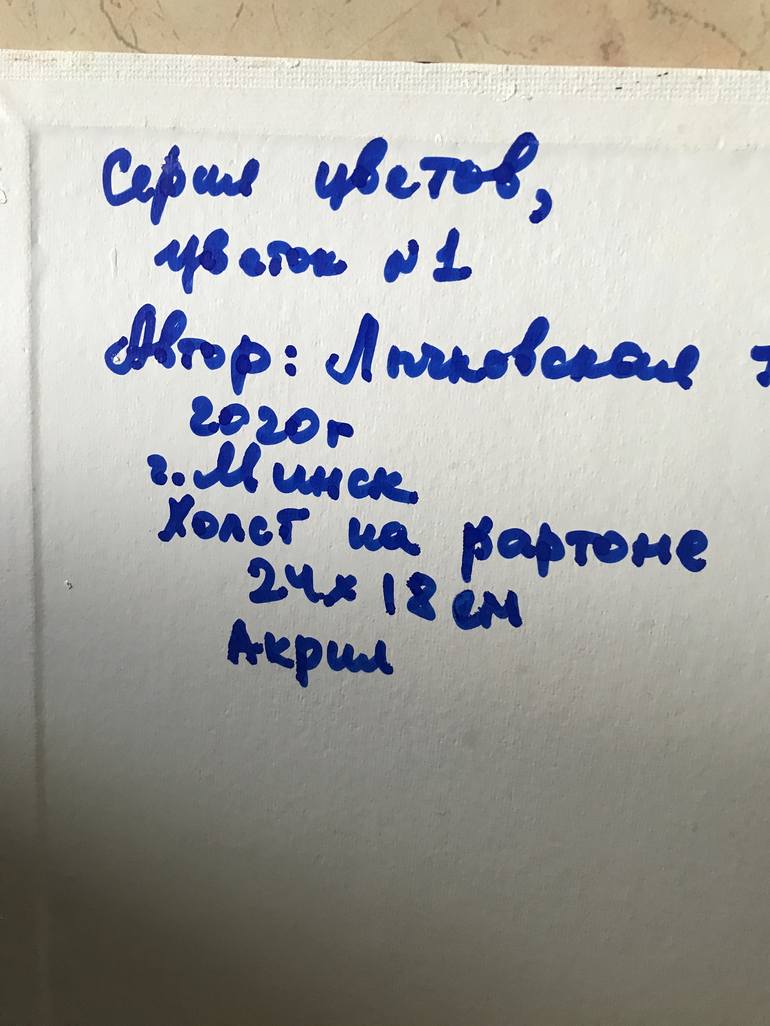 Серия цветов,
цветок №1
Автор: Лычковская
2020г
г. Минск
Холст на картоне
24x18 см
Акрил